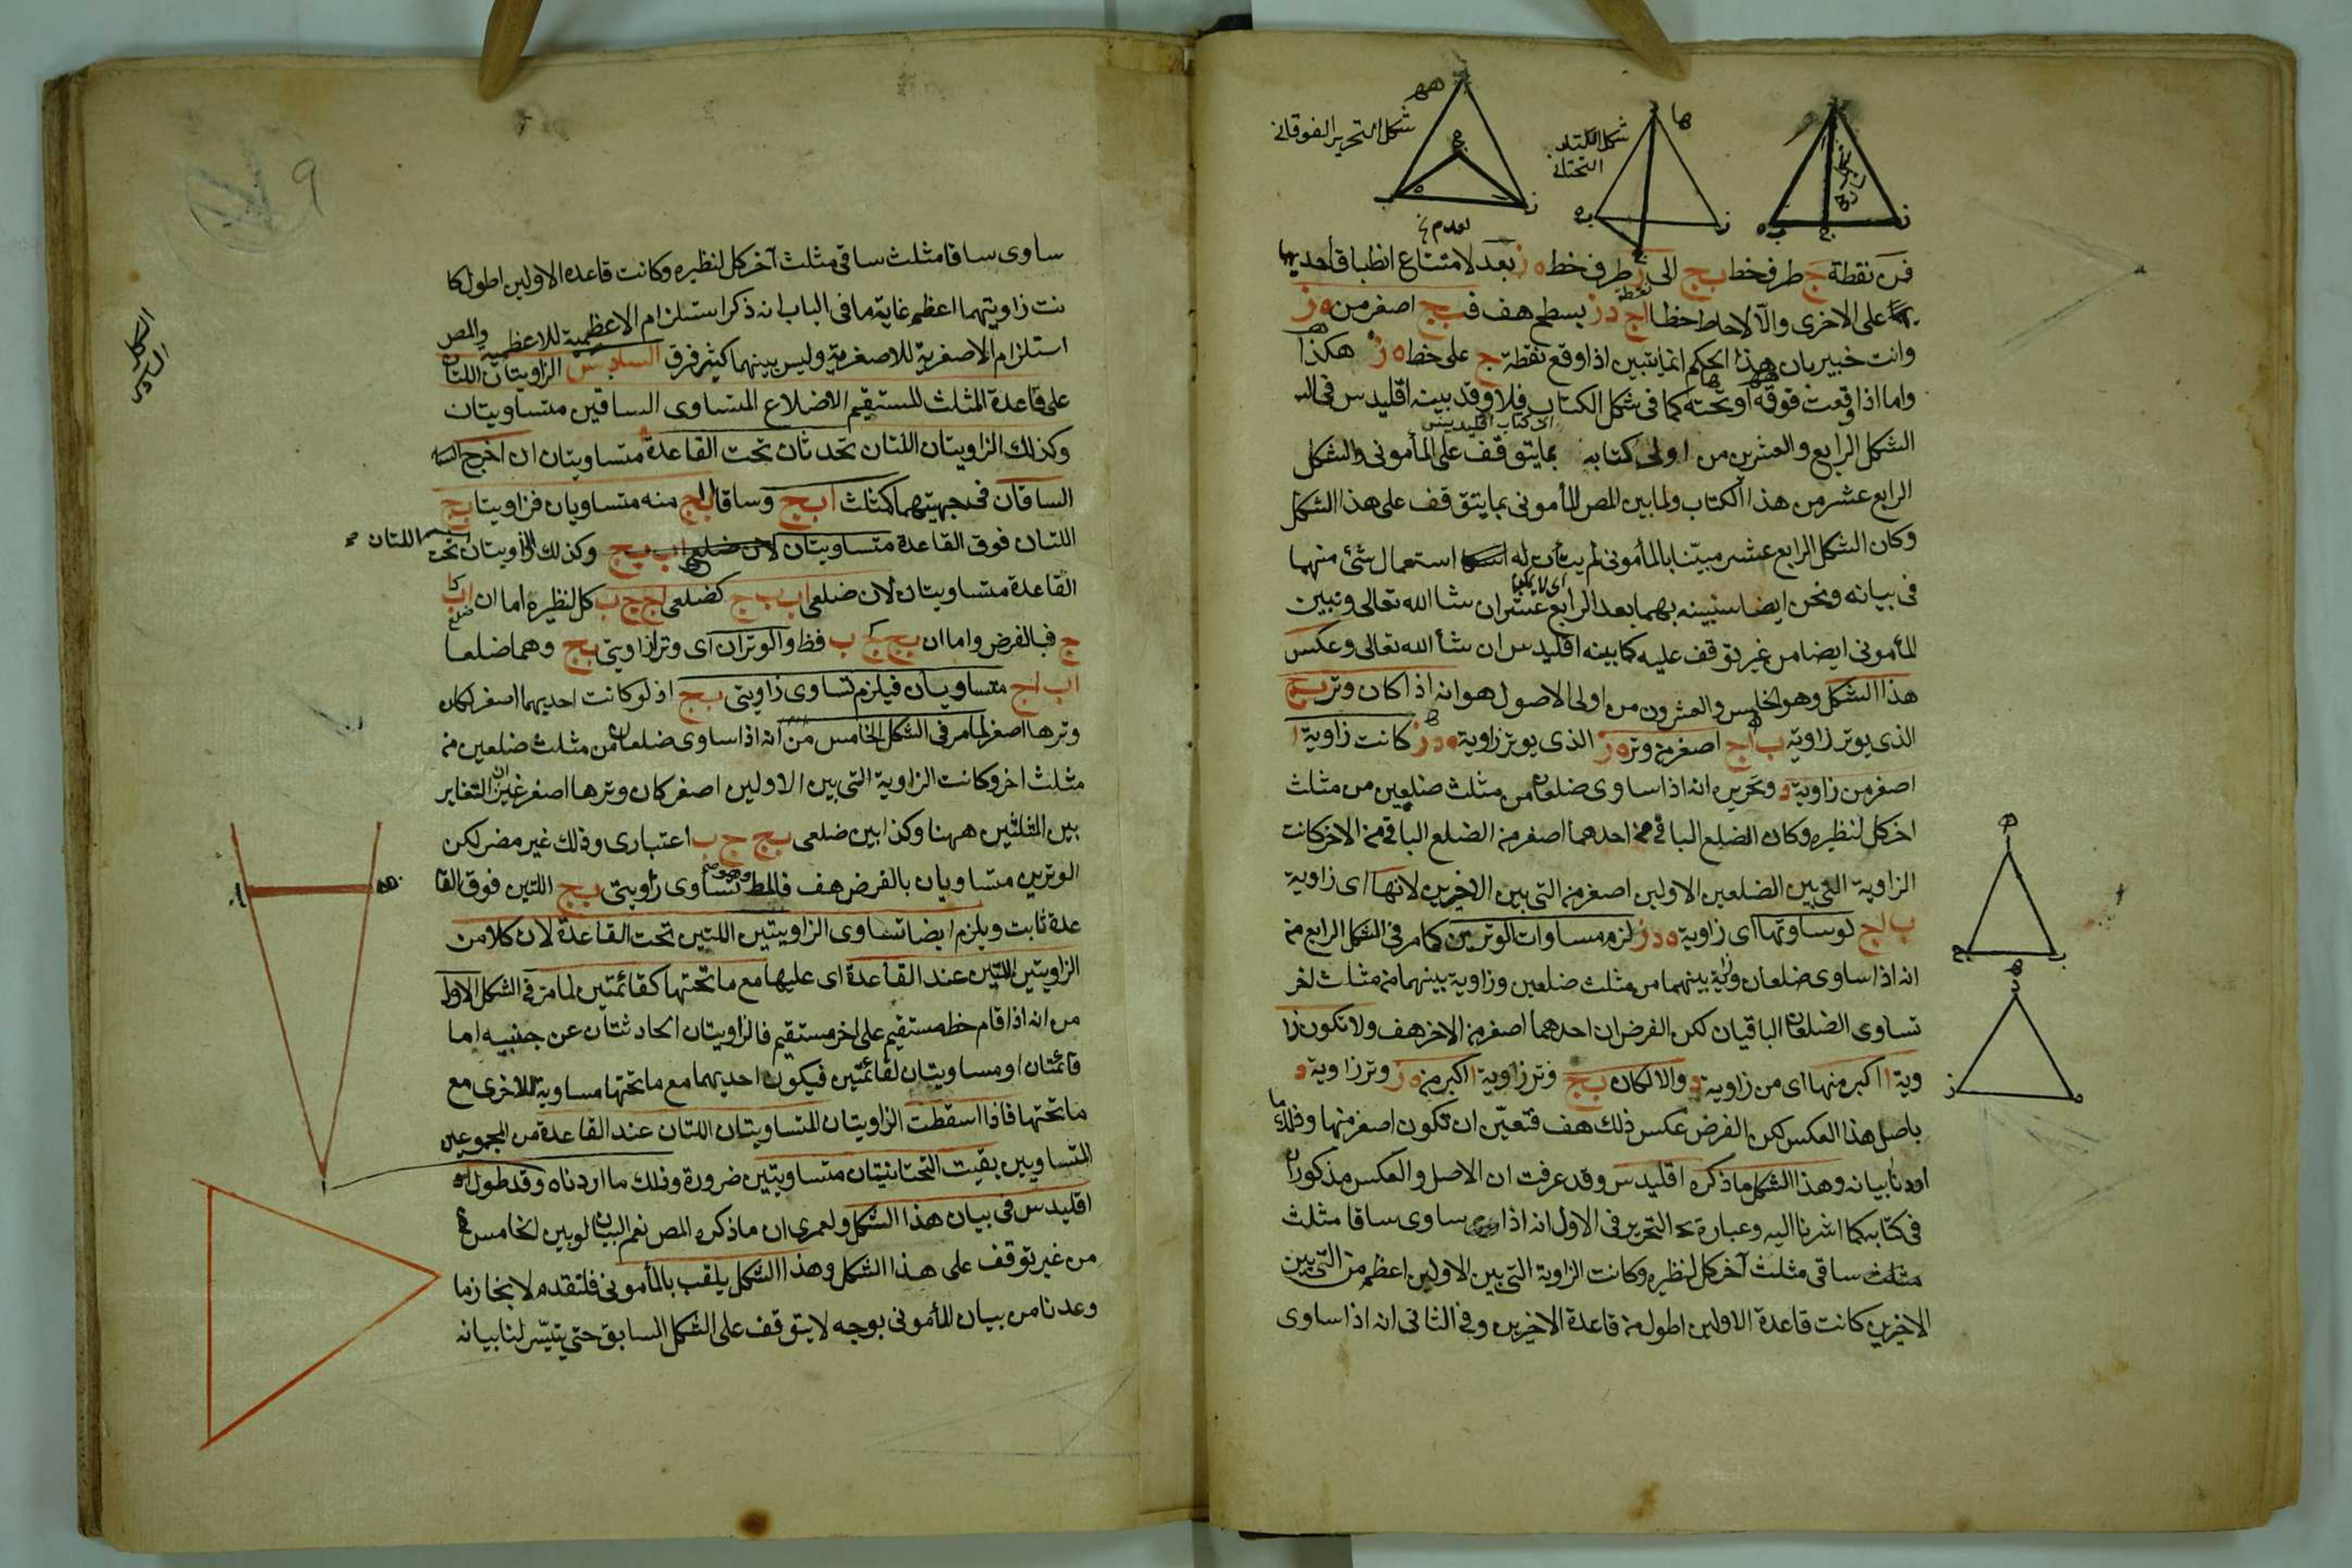 شكل التحرير الفوقاني
شكل الكتاب
التحتاني
فمن نقطة ج طرف خط ب ج الى ز طرف خط ه ز بعد لامتناع انطباق احديهما
على الاخرى والّا لاحاط خطا ا ج د ز بسطح هف فب ج اصغر من ه ز
وانت خبير بان هذا الحكم انما يتبين اذا وقع نقطة ج على خط ه ز هكذا
واما اذا وقعت فوقه او تحته كما في شكل الكتاب فلا وقد بينه اقليدس في
الشكل الرابع والعشرين من اولى كتابه بما يتوقف على المأموني والشكل
الرابع عشر من هذا الكتاب ولما بين المص المأموني بما يتوقف على هذا الشكل
وكان الشكل الرابع عشر مبيّنا بالمأموني لم يتأت له استعمال شئ منهما
في بيانه ونحن ايضا سنبينه بهما بعد الرابع عشر ان شا الله تعالى ونبين
المأموني ايضا من غير توقف عليه كما بينه اقليدس ان شأ الله تعالى وعكس
هذا الشكل وهو الخامس والعشرون من اولى الاصول هو انه اذا كان وتر ب ج
الذى يوتر زاوية ب ا ج اصغر من وتر ه ز الذى يوتر زاوية ه د ز كانت زاوية ا
اصغر من زاوية د وتحريره انه اذا ساوى ضلعان من مثلث ضلعين من مثلث
اخر كل لنظيره وكان الضلع الباقي من احدهما اصغر من الضلع الباقي من الاخر كانت
الزاوية التي بين الضلعين الاولين اصغر من التي بين الاخرين لانها اى زاوية
ب ا ج لو ساوتها اى زاوية ه د ز لزم مساوات الوترين كما مر في الشكل الرابع من
انه اذا ساوى ضلعان وزاوية بينهما من مثلث ضلعين وزاوية بينهما من مثلث اخر
تساوى الضلعان الباقيان لكن الفرض ان احدهما اصغر من الاخر هف ولا تكون زا
وية ا اكبر منها اى من زاوية د والا لكان ب ج وتر زاوية ا اكبر من ه ز وتر زاوية د
باصل هذا العكس لكن الفرض عكس ذلك هف فتعيّن ان تكون اصغر منها وذلك ما
اردنا بيانه وهذا الشكل ما ذكره اقليدس وقد عرفت ان الاصل والعكس مذكوران
في كتابه كما اشرنا اليه وعبارة التحرير في الاول انه اذا ساوى ساقا مثلث
مثلث ساقى مثلث آخر كل لنظيره وكانت الزاوية التي بين الاولين اعظم من التي بين
الاخرين كانت قاعدة الاولين اطول من قاعدة الاخرين وفي الثاني انه اذا ساوى
ساوى ساقا مثلث ساقى مثلث آخر كل لنظيره وكانت قاعدة الاولين اطول كا
نت زاويتهما اعظم غاية ما في الباب انه ذكر استلزام الاعظمية للاعظمية والمص
استلزام الاصغرية للاصغرية وليس بينهما كثير فرق السادس الزاويتان اللتان
على قاعدة المثلث المستقيم الاضلاع المتساوى الساقين متساويتان
وكذلك الزاويتان اللتان تحدثان تحت القاعدة متساويتان ان اخرج
الساقان في جهتيهما كمثلث ا ب ج وساقا ا ب ا ج منه متساويان فزاويتا ب ج
اللتان فوق القاعدة متساويتان وكذلك الزاويتان اللتان تحت
القاعدة متساويتان لان ضلعى ا ب ب ج كضلعى ا ج ج ب كل لنظيره اما ان ا ب كا
ج فبالفرض واما ان ب ج ك ج ب فظ والوتران اى وترا زاويتى ب ج وهما ضلعا
ا ب ا ج متساويان فيلزم تساوى زاويتى ب ج اذ لو كانت احديهما اصغر لكان
وترها اصغر لما مر في الشكل الخامس من انه اذا ساوى ضلعان من مثلث ضلعين من
مثلث اخر وكانت الزاوية التي بين الاولين اصغر كان وترها اصغر غير ان التغاير
بين المثلثين ههنا وكذا بين ضلعى ب ج ج ب اعتبارى وذلك غير مضر لكن
الوترين متساويان بالفرض هف فالمط وهو تساوى زاويتى ب ج اللتين فوق القا
عدة ثابت ويلزم ايضا تساوى الزاويتين اللتين تحت القاعدة لان كلا من
الزاويتين اللتين عند القاعدة اى عليها مع ما تحتها كقائمتين لما مر في الشكل الاول
من انه اذا قام خط مستقيم على اخر مستقيم فالزاويتان الحادثتان عن جنبيه اما
قائمتان او مساويتان لقائمتين فيكون احديهما مع ما تحتها مساوية للاخرى مع
ما تحتها فاذا اسقطت الزاويتان المتساويتان اللتان عند القاعدة من المجموعين
المتساويين بقيت التحتانيتان متساويتين ضرورة وذلك ما اردناه وقد طول
اقليدس في بيان هذا الشكل ولعمرى ان ما ذكره المص نعم البيان لو بين الخامس
من غير توقف على هذا الشكل وهذا الشكل يلقب بالمأموني فلتقدم لانجاز ما
وعدنا من بيان المأموني بوجه لا يتوقف على الشكل السابق حتى يتيسّر لنا بيانه
الشكل
السادس
9